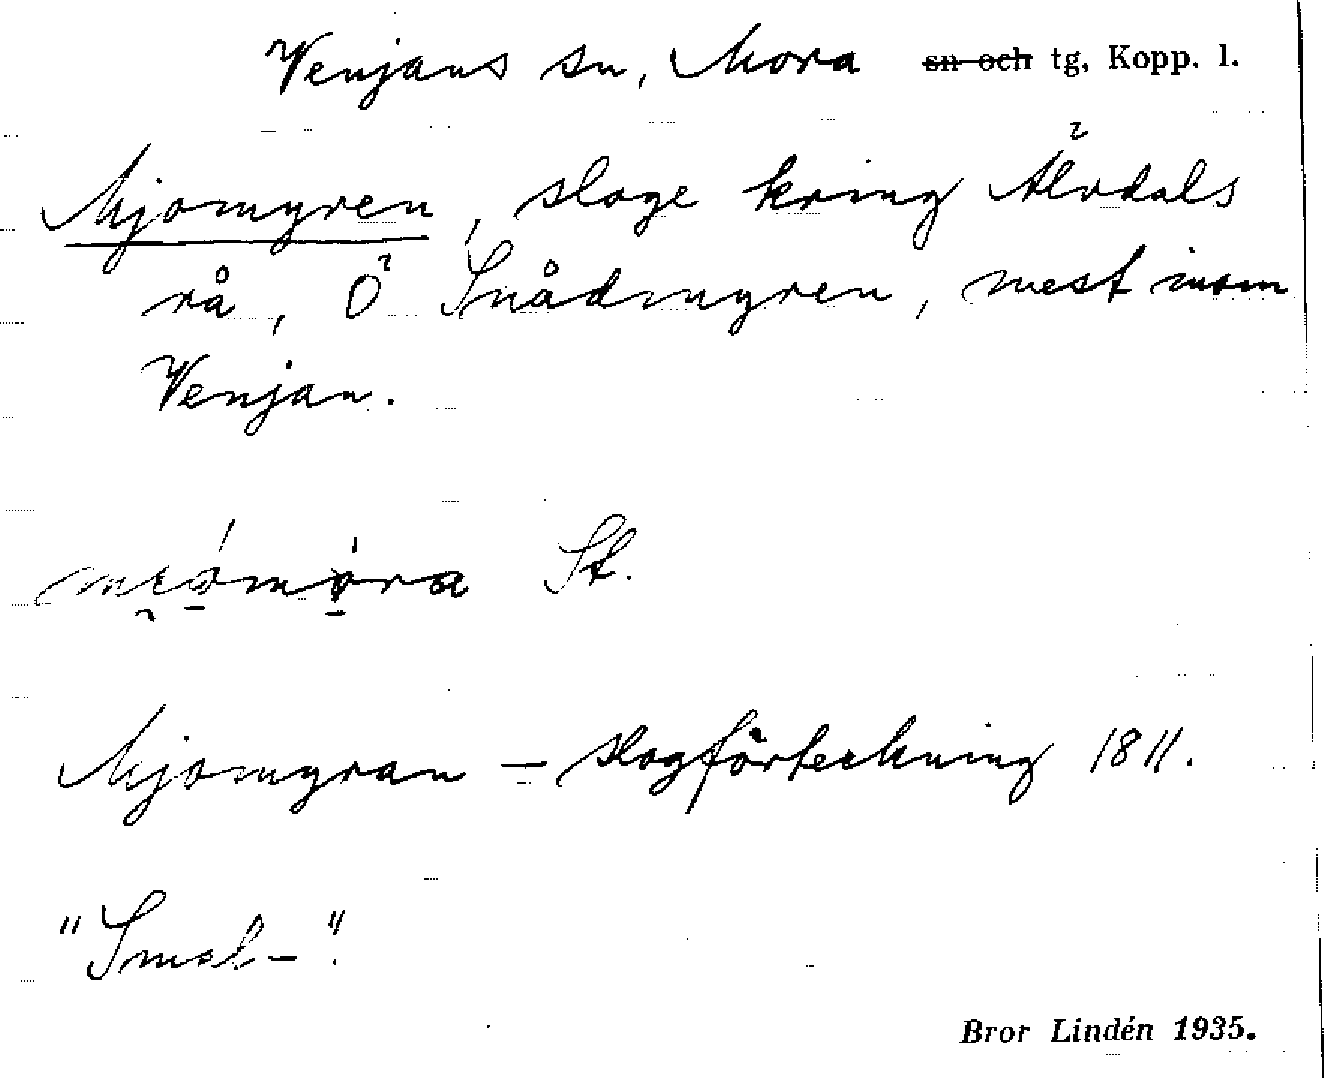 Venjans sn, Mora ~~sn och~~ tg, Kopp. l.
Mjomyren, sloge kring Älvdals
rå, Ö Snådmyren, mest inom
Venjan.
St.
Mjomyran – slogförteckning 1811.
"Smal-".
Bror Lindén 1935.